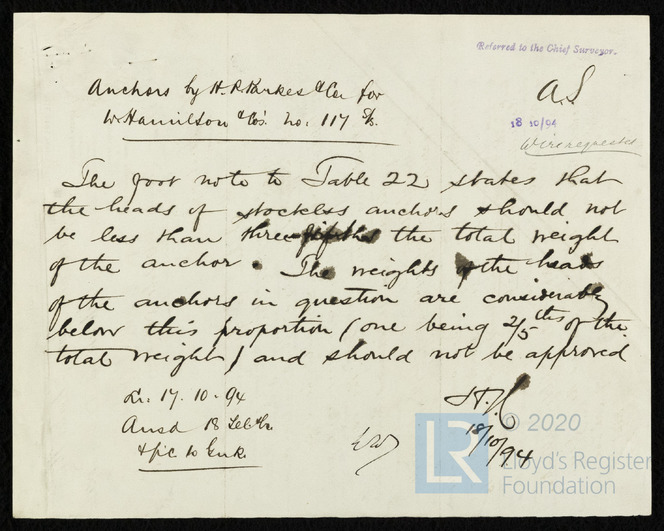 Referred to the Chief Surveyor.
Anchors by H. P. Parkes & Co. for
W. Hamilson & Co's. No. 117 S/S.
18 10/94
Wire requested
The foot note to Table 22 states that
the heads of stockless anchors should not
be less than three-fifths the total weight
of the anchor. The weights of the heads
of the anchors in question are considerably
below this proportion (one being 2/5ths of the
total weight) and should not be approved
Lr. 17.10.94
Ansd 18
to Gnk.
18/10/94
LR
© 2020
Lloyd's Register
Foundation